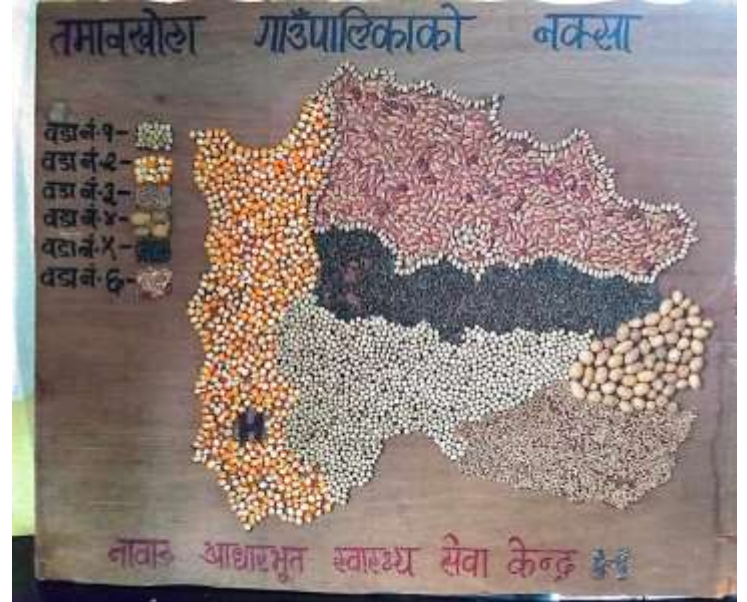 तमानखोला गाउँपालिकाको नक्सा
वडा नं.१-
वडा नं.२-
वडा नं.३-
वडा नं.४-
वडा नं.५-
वडा नं.६-
H
आधारभुत स्वास्थ्य सेवा केन्द्र